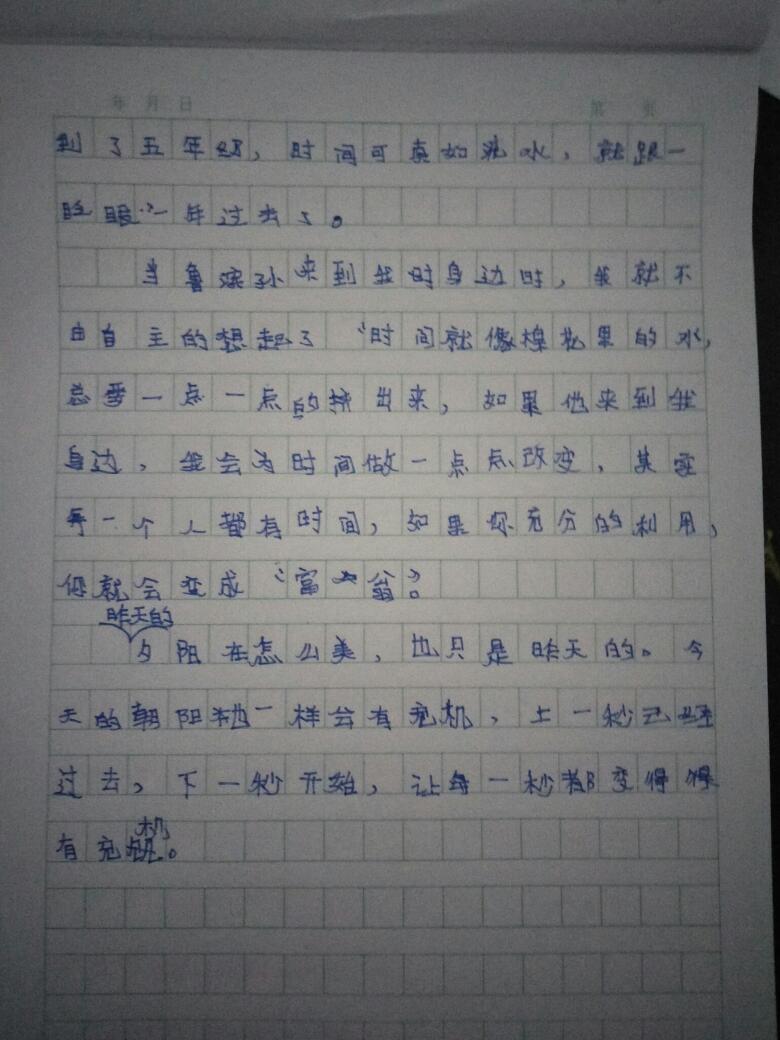 年 月 日
第 页
到了五年级，时间可真如流水，就跟一
眨眼一年过去了。
当鲁滨孙来到我时身边时，我就不
由自主的想起了“时间就像棉花里的水，
总要一点一点的挤出来，如果他来到我
身边，我会为时间做一点点改变，其实
每一个人都有时间，如果你充分的利用，
你就会变成“富翁”。
昨天的
夕阳在怎么美，也只是昨天的。今
天的朝阳也一样会有充机，上一秒已经
过去，下一秒开始，让每一秒都变得
有充机。